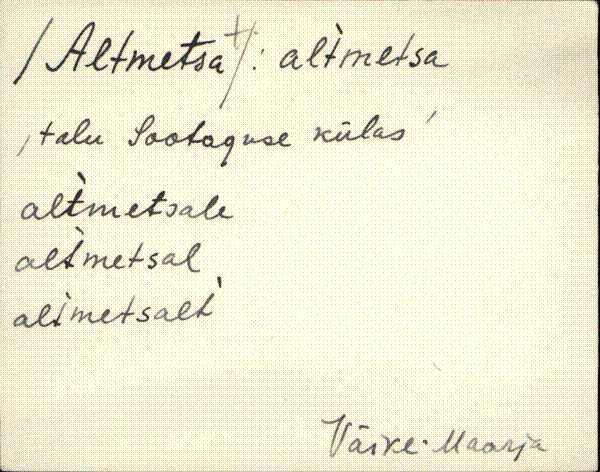 /Altmetsa⁺/: al̀tmetsa
,talu Sootaguse külas'
al̀tmetsale
al̀tmetsal
al̀tmetsal̀t
Väike-Maarja